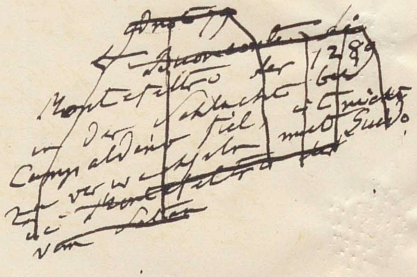 Buonconte di
Montefeltro der 1289
in der Schlacht bei
Campaldino fiel, ist nicht
zu verwechseln mit Guido
de Montefeltro der
vom